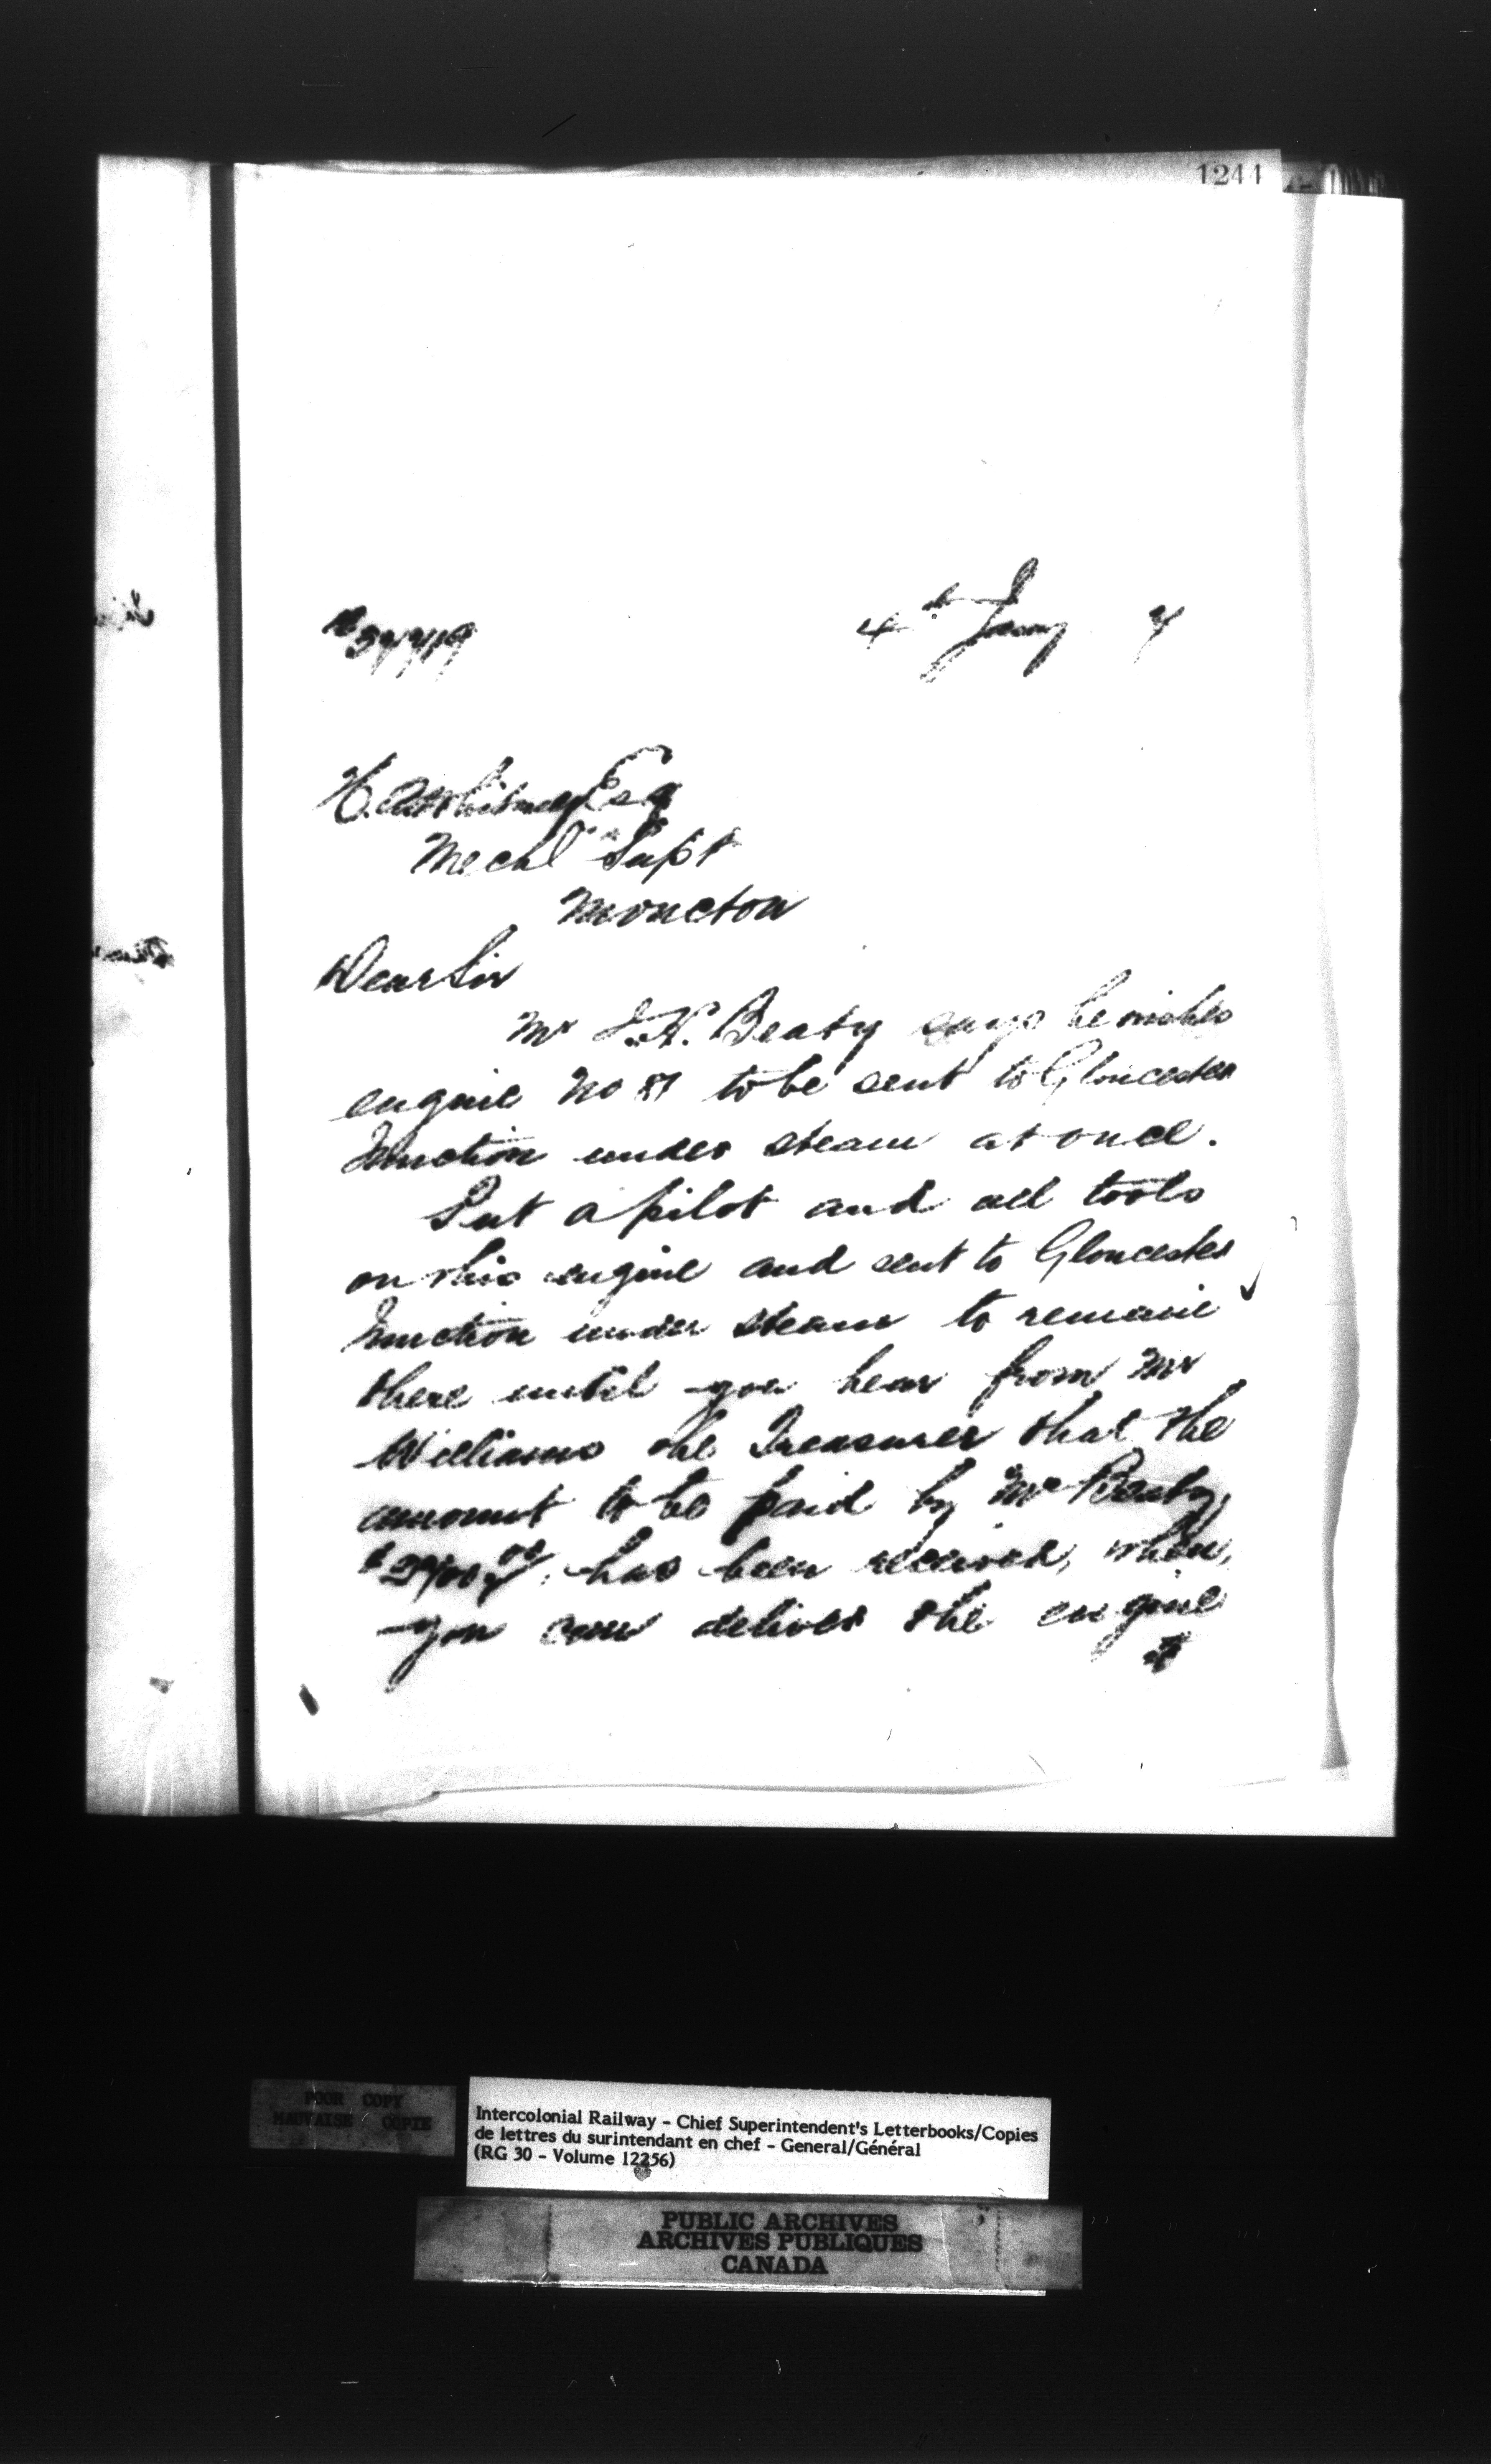 1244
4th Jany 7
H. A. Whitney Esq
Mechl Supt
Moncton
Dear Sir
Mr J. H. Beaty says he wishes
engine No 87 to be sent to Gloucester
Junction under steam at once.
Put a pilot and all tools
on this engine and sent to Gloucester
Junction under steam to remain
there until you hear from Mr
Williams the Treasurer that the
amount to be paid by Mr Beaty,
has been received, when,
you can deliver the engine
to
POOR COPY
MAUVAISE COPIE
Intercolonial Railway - Chief Superintendent's Letterbooks/Copies
de lettres du surintendant en chef - General/Général
(RG 30 - Volume 12256)
PUBLIC ARCHIVES
ARCHIVES PUBLIQUES
CANADA